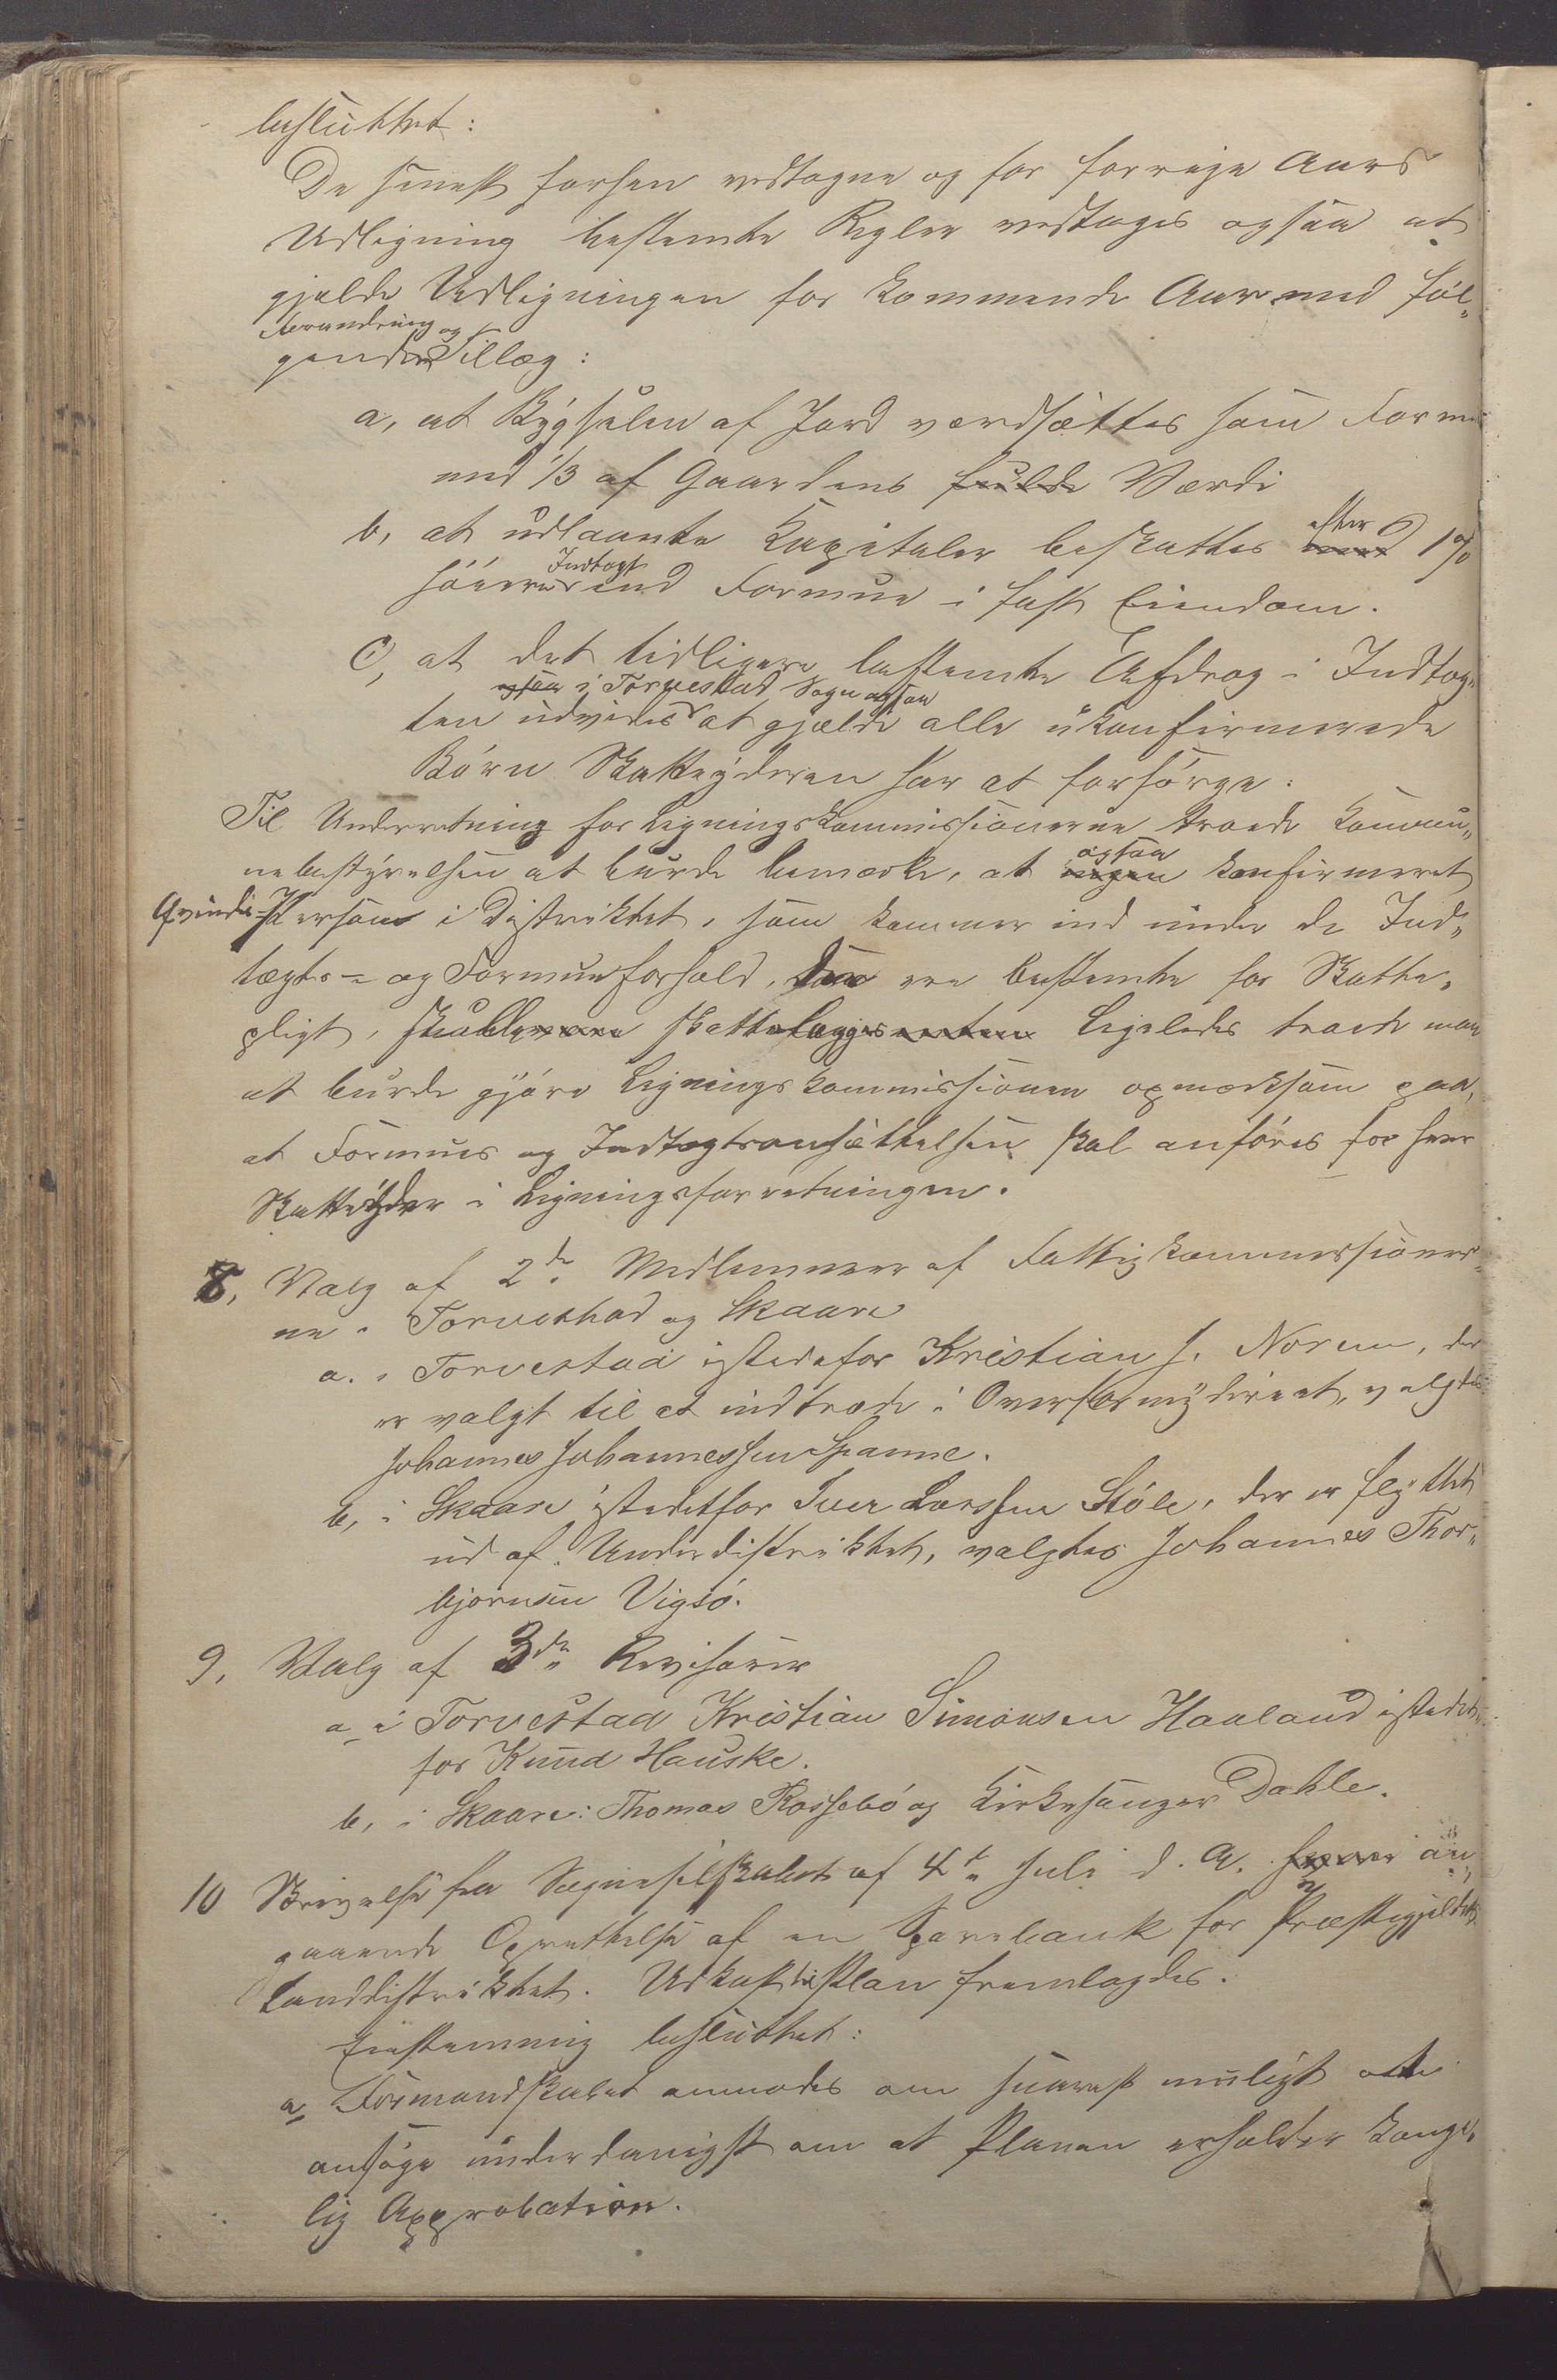 besluttet:
De sinest forhen vedtagne og for forrige Aars
Udligning bestemte Regler vedtages ogsaa at
gjelde Udligningen for kommende Aar med føl„
Forandring og
gende Tillæg:
a, at Bygselen af Jord værdsættes som Formue
med 1/3 af Gaardens fulde Værdi
b, at udlaante Kapitaler beskattes efter 1%
Indtægt
høiere end Formue i fast Eiendom.
c, at det tidligere bestemte Afdrag i Indtæg„
ogsaa i Torvestad Sogn ogsaa
ten udvides at gjælde alle ukonfirmerede
Børn Skatteyderen har at forsørge.
Til Underretning for Ligningskommissionerne troede Kommu„
nebestyrelsen at burde bemærke, at ogsaa ingen konfirmeret
Qvinde-Person i Distriktet, som kommer ind under de Ind„
tægts- og Formuesforhold, som ere bestemte for Skatte„
pligt, skattelægges Ligeledes troede man
at burde gjøre Ligningskommissionen opmærksom paa,
at Formues og Indtægtsansættelsen skal anføres for hver
Skatteyder i Ligningsforretningen.
8, Valg af 2de Medlemmer af Fattigkommissioner„
ne i Torvestad og Skaare
a. i Torvestad istedefor Kristian J. Norem, der
er valgt til at indtræde i Overformynderiet, valgtes
Johannes Johannessen Spanne.
b, i Skaare istedetfor Iver Larssen Støle, der er flyttet
ud af Underdistriktet, valgtes Johannes Thor„
bjørnsen Vigsø.
9, Valg af 3de Revisorer
a, i Torvestad Kristian Simonsen Haaland istedet„
for Knud Hauske.
b, i Skaare: Thomas Rossebø og Kirkesanger Dahle.
10 Skrivelse fra Sogneselskabet af 4de Juli d. A. an„
gaaende Oprettelse af en Sparebank for Præstegjeldets
Landdistriktet. Udkast til Plan fremlagdes.
Enstemmig besluttet:
a, Formandskabet anmodes om snarest muligt at
ansøge underdanigst om at Planen erholder Konge„
lig Approbation.